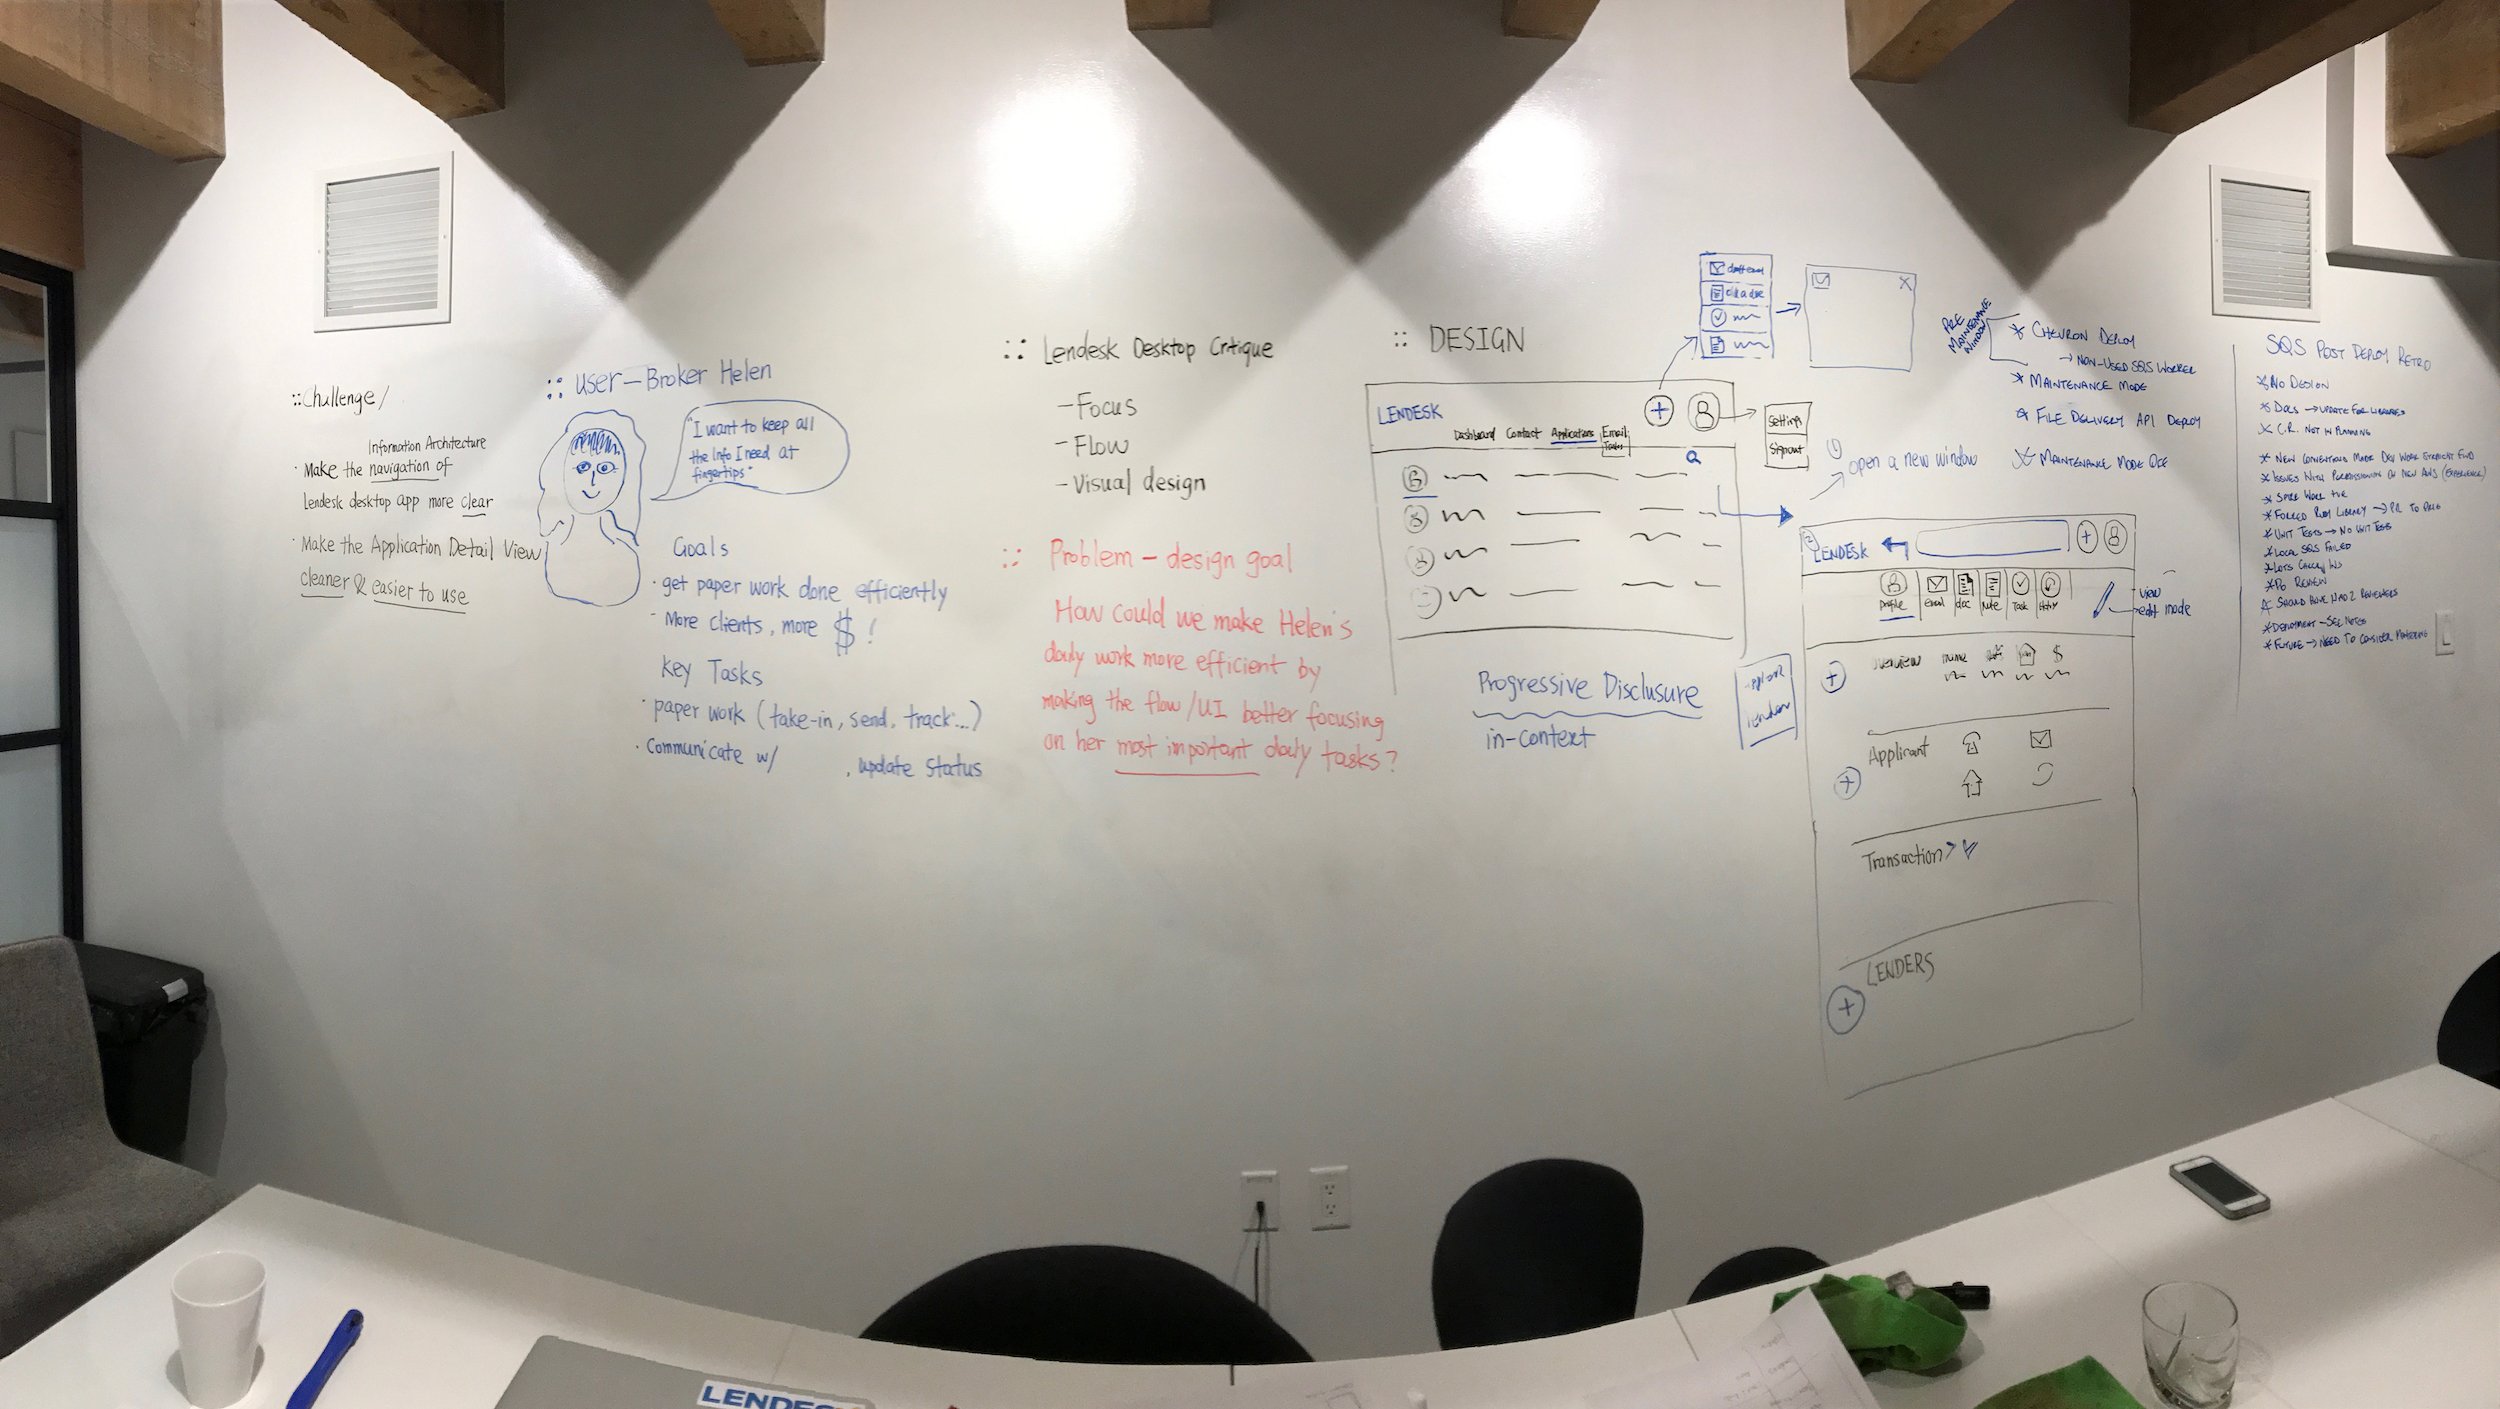 :: Challenge/
Information Architecture
· Make the navigation of
Lendesk desktop app more clear
· Make the Application Detail View
cleaner & easier to use
:: user - Broker Helen
"I want to keep all
the Info I need at
fingertips"
Goals
· get paper work done efficiently
- More clients, more $!
Key Tasks
· paper work (take-in, send, track...)
· Communicate w/ , update status
:: Lendesk Desktop Critique
- Focus
- Flow
- Visual design
:: Problem - design goal
How could we make Helen's
daily work more efficient by
making the flow/UI better focusing
on her most important daily tasks?
:: DESIGN
LENDESK
Dashboard Contact Applications Email
Tasks
Settings
Signout
Progressive Disclusure
in-context
lender
①
open a new window
LENDESK
Profile email doc Note Task
view
edit mode
overview name $
Applicant
Transaction >
LENDERS
PRE
MAINTENANCE
WINDOW
* CHEVRON DEPLOY
→ NON-USED SQS WORKER
* MAINTENANCE MODE
* FILE DELIVERY API DEPLOY
* MAINTENANCE MODE OFF
SQS POST DEPLOY RETRO
* NO DESIGN
* DOCS → UPDATE FOR LIBRARIES
* C.R. NOT IN PLANNING
* NEW CONVENTIONS MADE DEV WORK STRAIGHT FWD
* ISSUES WITH PERMISSIONING ON NEW AWS (EXPERIENCE)
* FORKED RUBY LIBRARY → PR TO
* UNIT TESTS → NO UNIT TESTS
* LOCAL SQS FAILED
* PO REVIEW
* SHOULD HAVE HAD 2 REVIEWERS
* DEPLOYMENT - SEE NOTES
* FUTURE → NEED TO CONSIDER MONITORING
LENDES